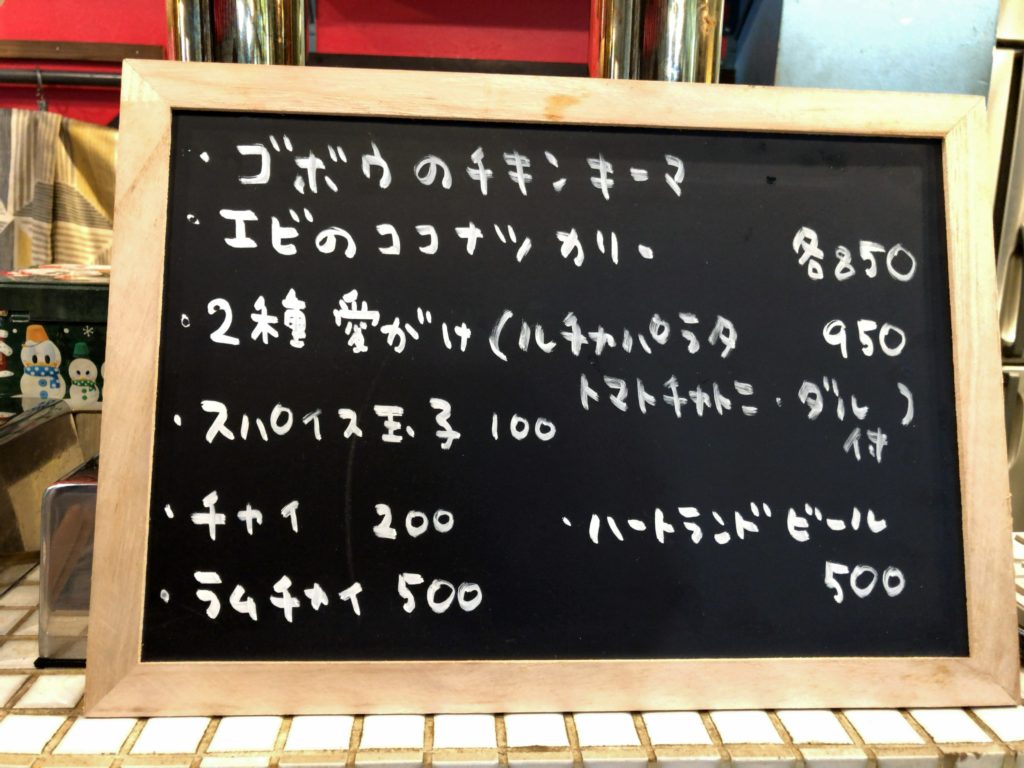 ・ゴボウのチキンキーマ
・エビのココナツカリー 各850
・2種愛がけ(ルチャパラタ 950
トマトチャトニ・ダル)
付
・スパイス玉子 100
・チャイ 200 ・ハートランドビール
500
・ラムチャイ 500